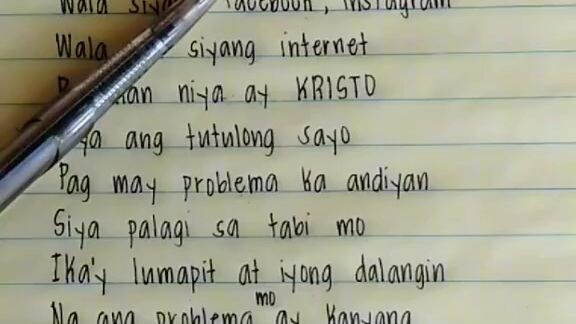 Wala facebook, instagram
Wala siyang internet
niya ay KRISTO
ang tutulong sayo
Pag may problema ka andiyan
Siya palagi sa tabi mo
Ika'y lumapit at iyong dalangin
Na ang problema mo ay kanyang